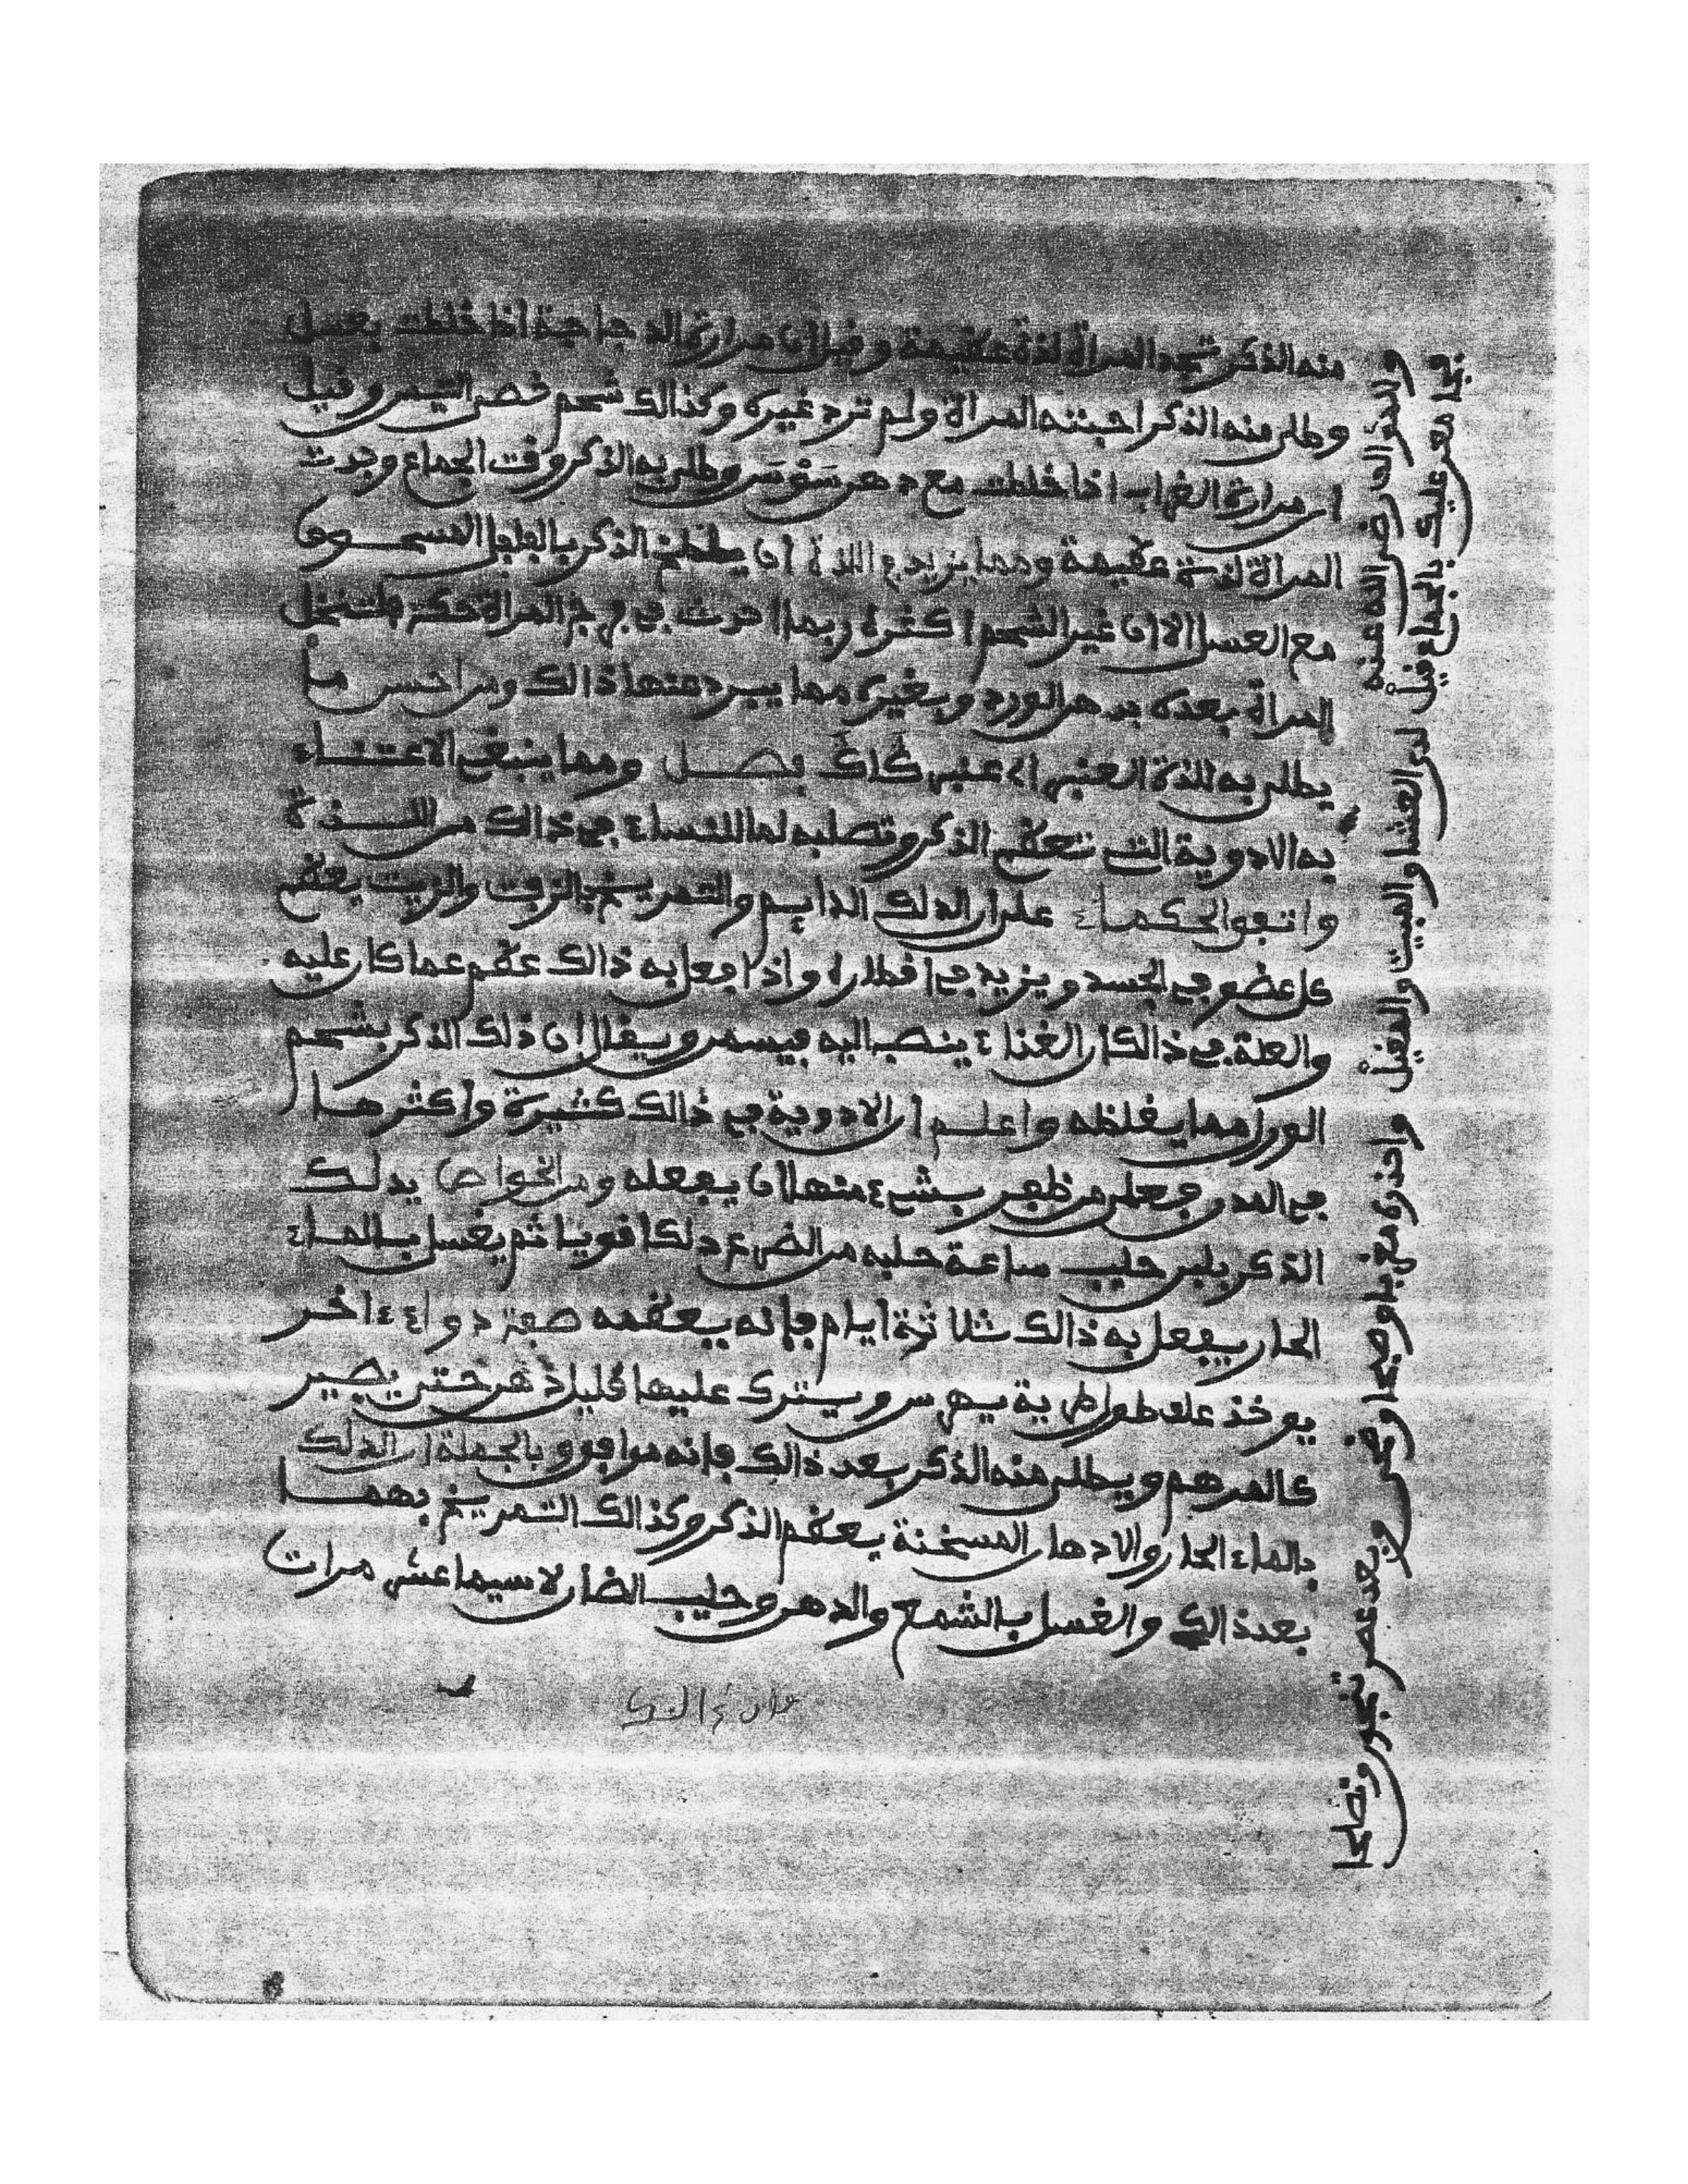 منه الذكر تجد المراة لذة عظيمة وقيل ان مرارة الدجاجة اذا خلطت بعسل
وطلي منه الذكر احبته المراة ولم ترد غيره وكذالك شحم خصي التيس وقيل
ان مرارة الغراب اذا خلطت مع دهن سَوْسَن وطلي به الذكر وقت الجماع وجدت
المراة لذة عظيمة ومما يزيد في اللذة ان يلطخ الذكر بالفلفل المسحوق
مع العسل الا ان غير الشحم اكثره ربما احدث في فرج المراة حكة
المراة بعده بدهن الورد وبغيره مما يبرد عنها ذالك ومن احسن ما
يطلى به للذة العنبر فصل ومما ينبغي الاعتناء
به الادوية التي تعظم الذكر وتصلبه لما للنساء في ذالك من اللذة
واتفق الحكماء على ان الدلك الدايم والتمريخ بالزفت والزيت يعظم
كل عضو في الجسد ويزيد في اقطاره واذا فعل به ذالك عظم عما كان عليه
والعلة في ذالك ان الغذاء ينصب اليه فيسمن ويقال ان ذلك الذكر بشحم
الورل مما يغلظه واعلم ان الادوية في ذالك كثيرة واكثرها
في المدن فعلى من ظفر بشيء منها ان يفعله ومن الخواص يدلك
الذكر بلبن حليب ساعة حلبه من الضرع دلكا قويا ثم يغسل بالماء
الحار يفعل به ذالك ثلاثة ايام فانه يعظمه صفة دواء اخر
يوخذ علق طرية يهرس ويترك عليها قليل حتى يصير
كالمرهم ويطلى منه الذكر بعد ذالك فانه موافق وبالجملة ان الدلك
بالماء الحار والادهان المسخنة يعظم الذكر وكذالك التمريخ بهما
بعد ذالك والغسل بالشمع والدهن وحليب الضان لاسيما عشر مرات
فيما معر عليك بالجماع قيل لدى العشا والمبيت والمقيل واحذره مغربا وصبحا وظهر وبعد عصر تنجو ونصلحا
والله رضي الله عنه